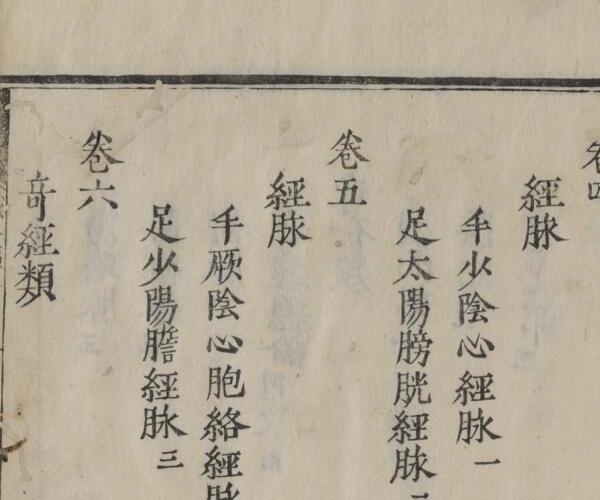 卷四
經脉
手少陰心經脉一
足太陽膀胱經脉
卷五
經脉
手厥陰心胞絡經脉
足少陽膽經脉三
卷六
奇經類